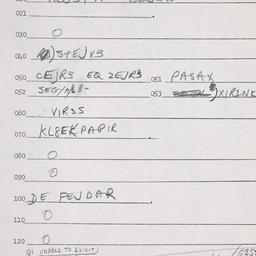 021
030 O
040 ) STEJV3
050 CEJR3 EQ 2EJR3 051 PASAX
052 SEG/ 053 XIRINK
060 VIR3S
070 KL8EKPAPIR
080 O
090 O
100 DE FEJDAR
110 O
120 O
Q1 UNABLE TO ELICIT